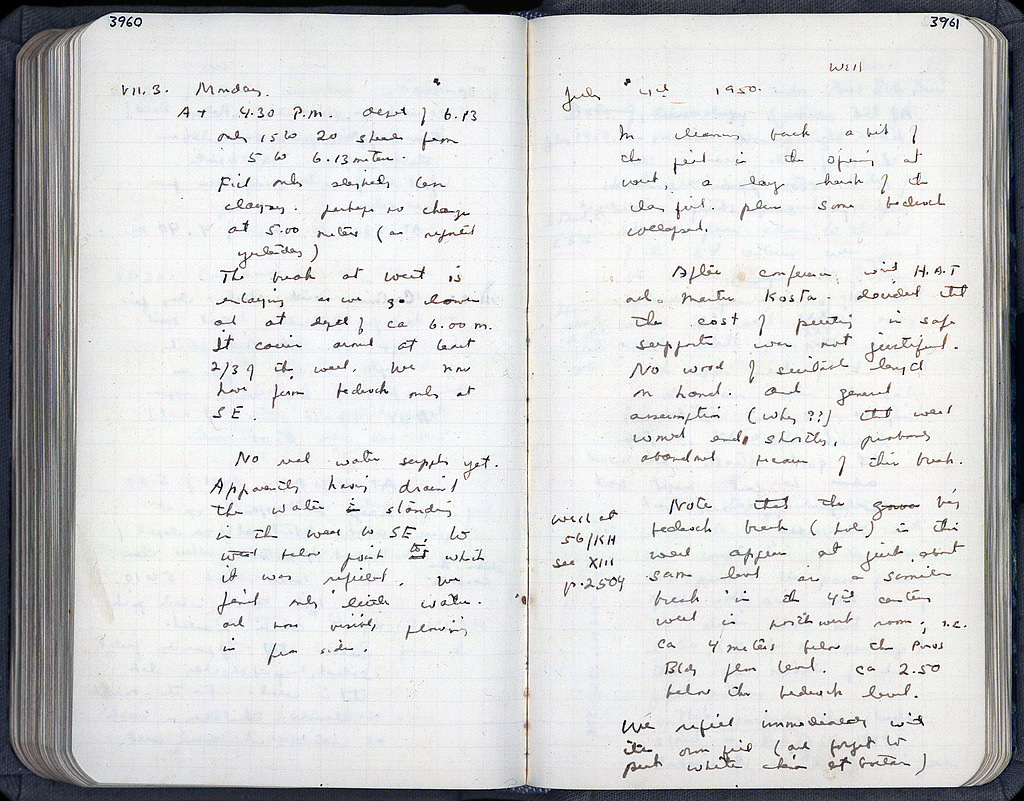 3960
VII.3. Monday.
At 4.30 P.M. depth of 6.13
only 15 to 20 sherds from
5 to 6.13 meters.
Fill only slightly less
clayey. perhaps no change
at 5.00 meters (as reported
yesterday)
The break at west is
enlarging as we go down
and at depth of ca 6.00 m.
It covers around at least
2/3 of the well. We now
have firm bedrock only at
SE
No real water supply yet.
Apparently having drained
the water in standing
in the well to SE, to
well below point to which
it was refilled, we
find only little water.
and none visibly flowing
in from sides.
3961
Well
July 4th 1950.
In cleaning back a bit of
the fill in the opening at
west, a large hunk of the
clay fill plus some bedrock
collapsed.
After conference with H.A.T
and Master Kosta decided that
the cost of putting in safe
supports was not justified.
No wood of suitable length
on hand. and general
assumption (why??) that well
would end shortly, probably
abandoned because of this break.
Note that the big
bedrock break (hole) in this
well appears at just about
same level as a similar
break in the 4th century
well in northwest room, i.e.
ca 4 meters below the Poros
Bldg floor level. ca 2.50
below the bedrock level.
well at
56/KH
see XIII
p.2504
We refill immediately with
its own fill (and forget to
put white at bottom)